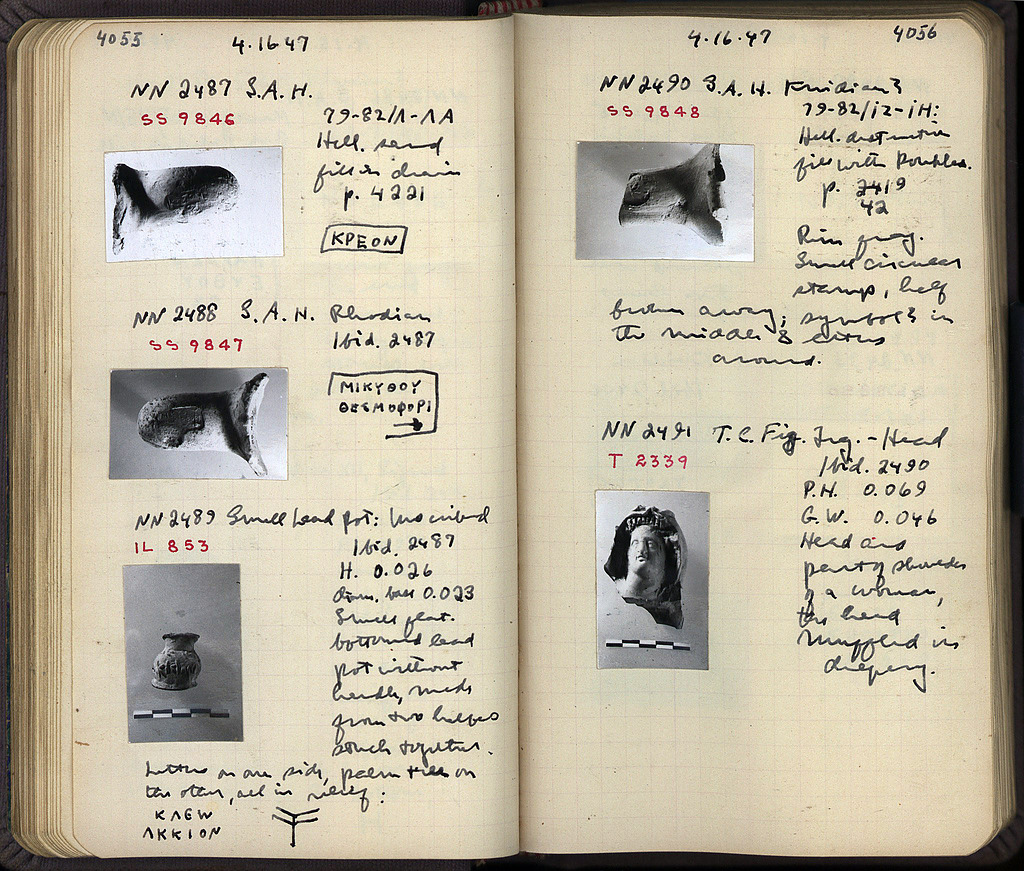 4055
4.16.47
NN 2487 S.A.H.
SS 9846
79-82/Λ-ΛΑ
Hell. sand
fill in drain
p. 4221
ΚΡΕΟΝ
NN 2488 S.A.H. Rhodian
SS 9847
Ibid. 2487
ΜΙΚΥΘΟΥ
ΘΕΣΜΟΦΟΡΙ
NN 2489 Small lead pot: Inscribed
IL 853
Ibid. 2487
H. 0.026
diam. base 0.023
Small flat
bottomed lead
pot without
handle, made
from two halves
stuck together.
Letters on one side, palm tree on
the other, all in relief:
ΚΛΕW
ΑΚΚΙΟΝ
4.16.47
4056
NN 2490 S.A.H. Knidian?
SS 9848
79-82/ΙΖ-ΙΗ:
Hell. destruction
fill with
p. 2419
42
Rim gray.
Small circular
stamp, half
broken away; symbol? in
the middle & letters
around.
NN 2491 T.C. Fig. Frg. - Head
T 2339
Ibid. 2490
P.H. 0.069
G.W. 0.046
Head and
part of shoulder
of a woman,
the head
muffled in
drapery.